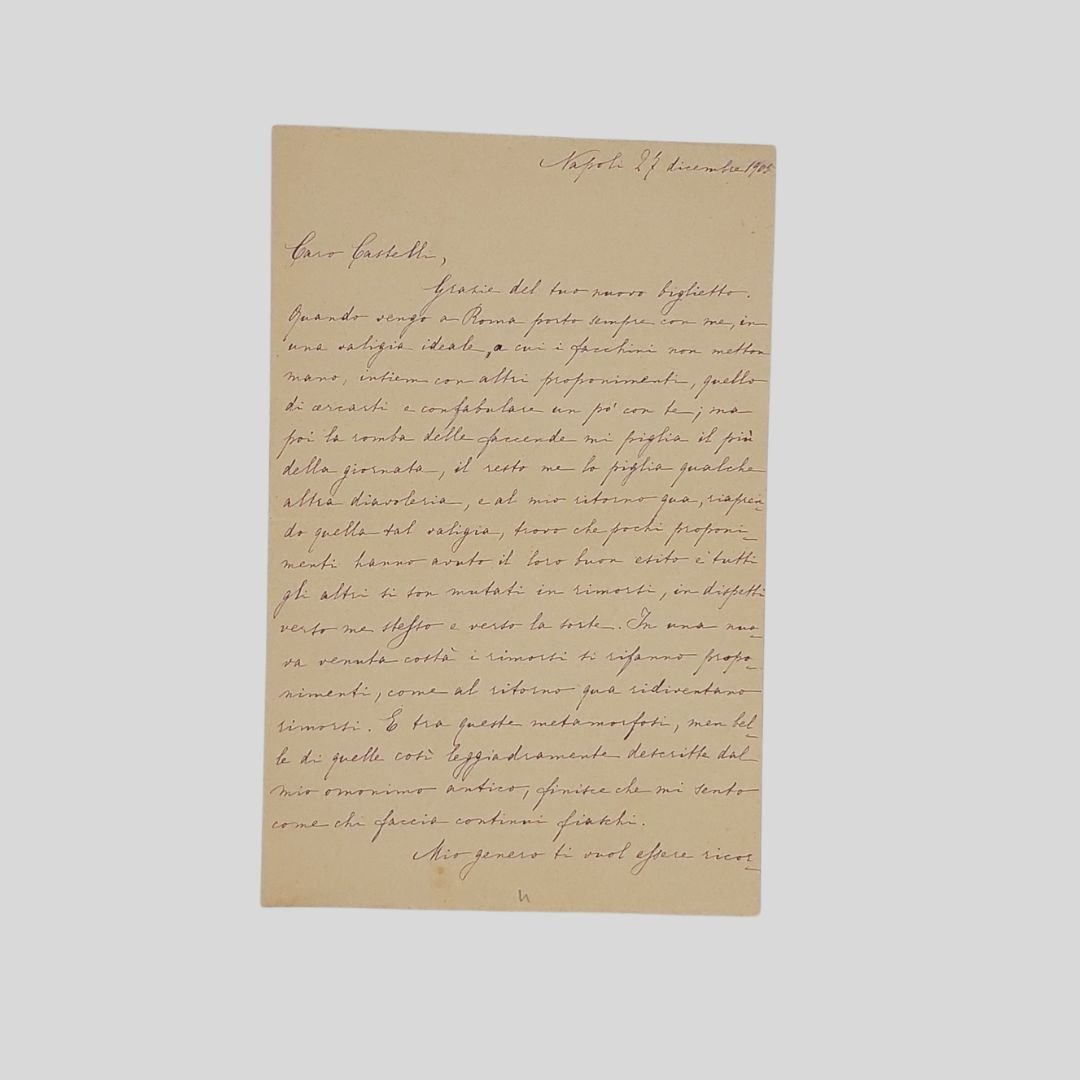 Napoli 27 dicembre 1905
Caro Castelli,
Grazie del tuo nuovo biglietto.
Quando vengo a Roma porto sempre con me, in
una valigia ideale, a cui i facchini non metton
mano, insiem con altri proponimenti, quello
di cercarti e confabulare un pò con te; ma
poi la romba delle faccende mi piglia il più
della giornata, il resto me lo piglia qualche
altra diavoleria, e al mio ritorno qua, riapren-
do quella tal valigia, trovo che pochi proponi-
menti hanno avuto il loro buon esito e tutti
gli altri si son mutati in rimorsi, in dispetti
verso me stesso e verso la sorte. In una nuo-
va venuta costà i rimorsi si rifanno propo-
nimenti, come al ritorno qua ridiventano
rimorsi. E tra queste metamorfosi, men bel-
le di quelle così leggiadramente descritte dal
mio omonimo antico, finisce che mi sento
come chi faccia continui fiaschi.
Mio genero ti vuol essere ricor-